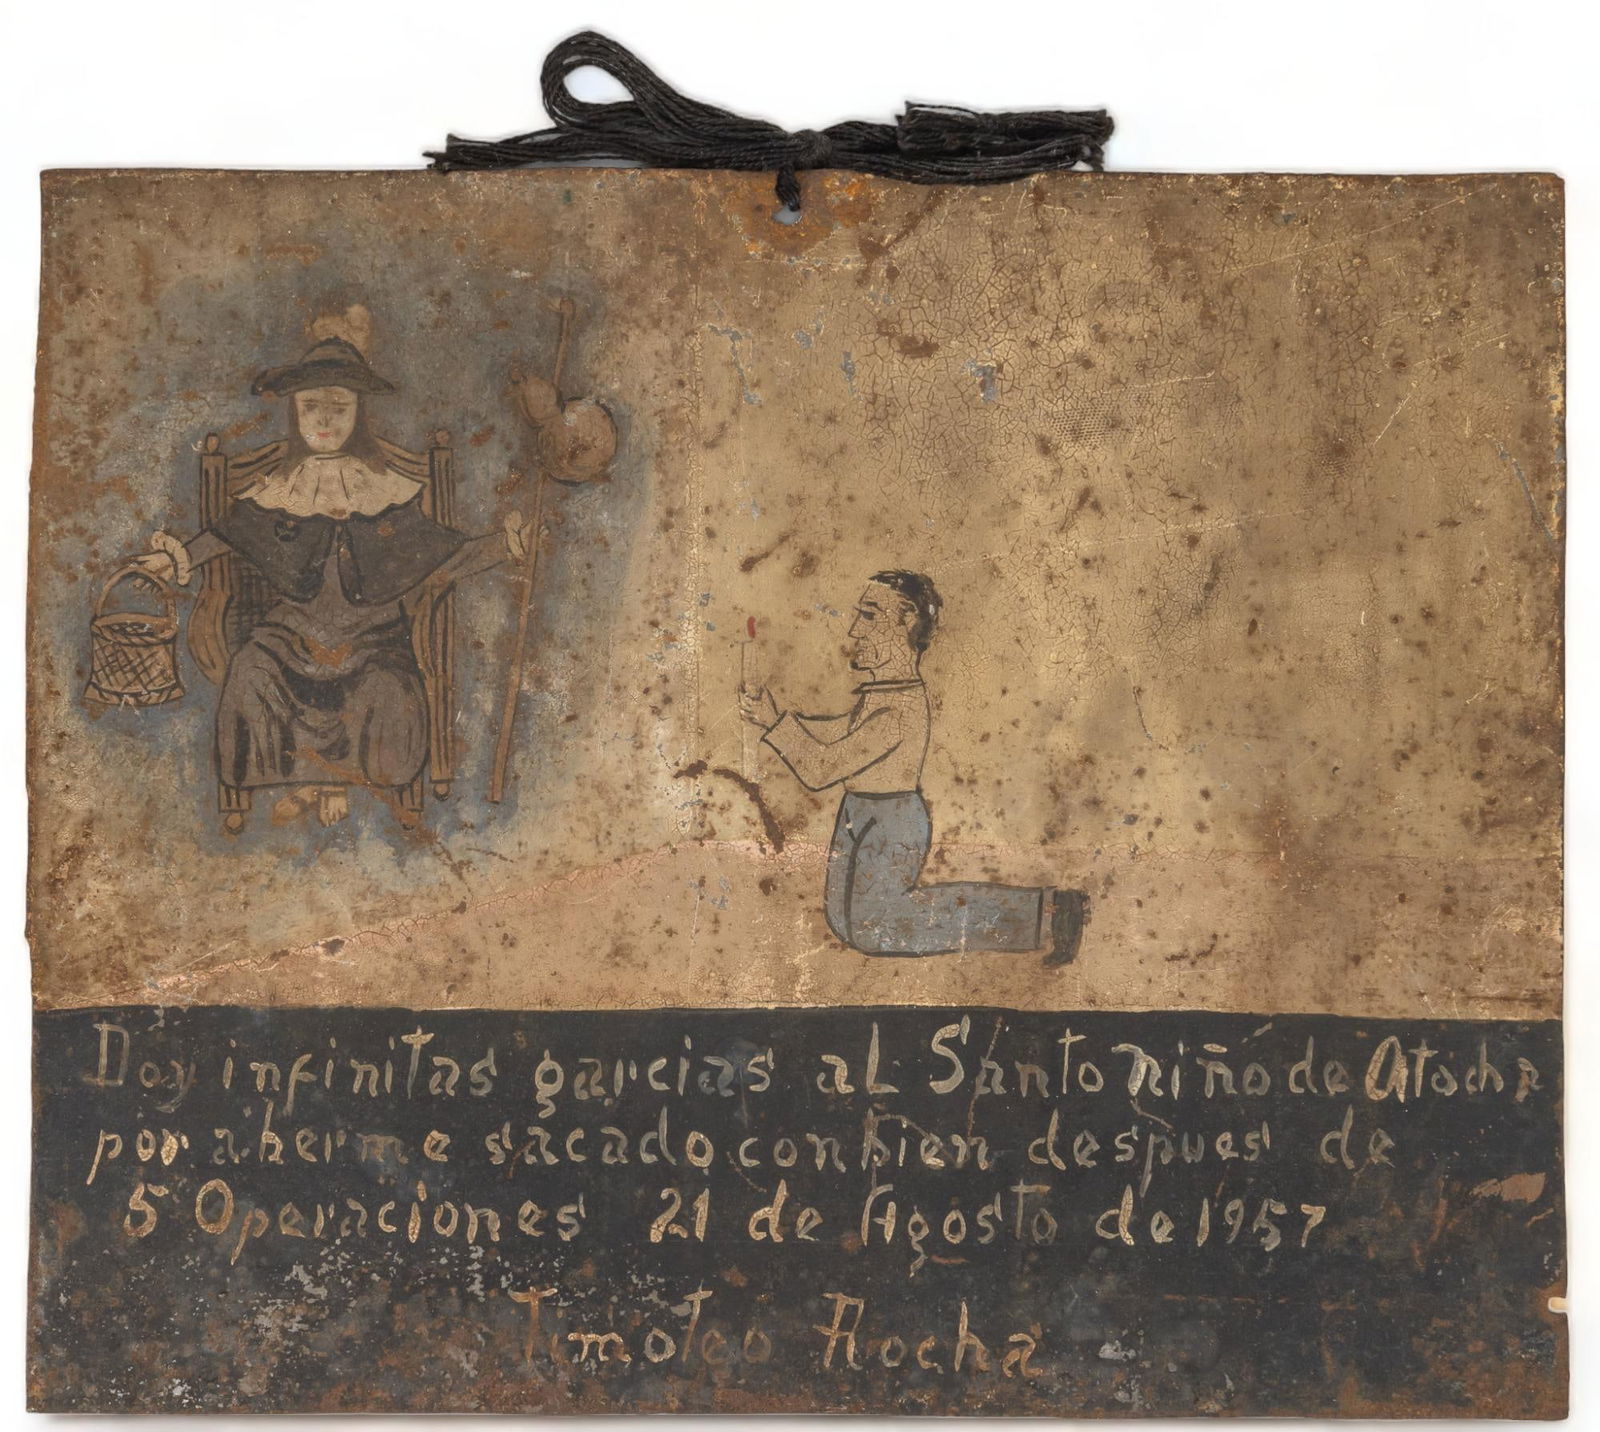 Doy infinitas garcias al Santo niño de Atocha
por aherme sacado con bien despues de
5 Operaciones 21 de Agosto de 1957
Timoteo Rocha